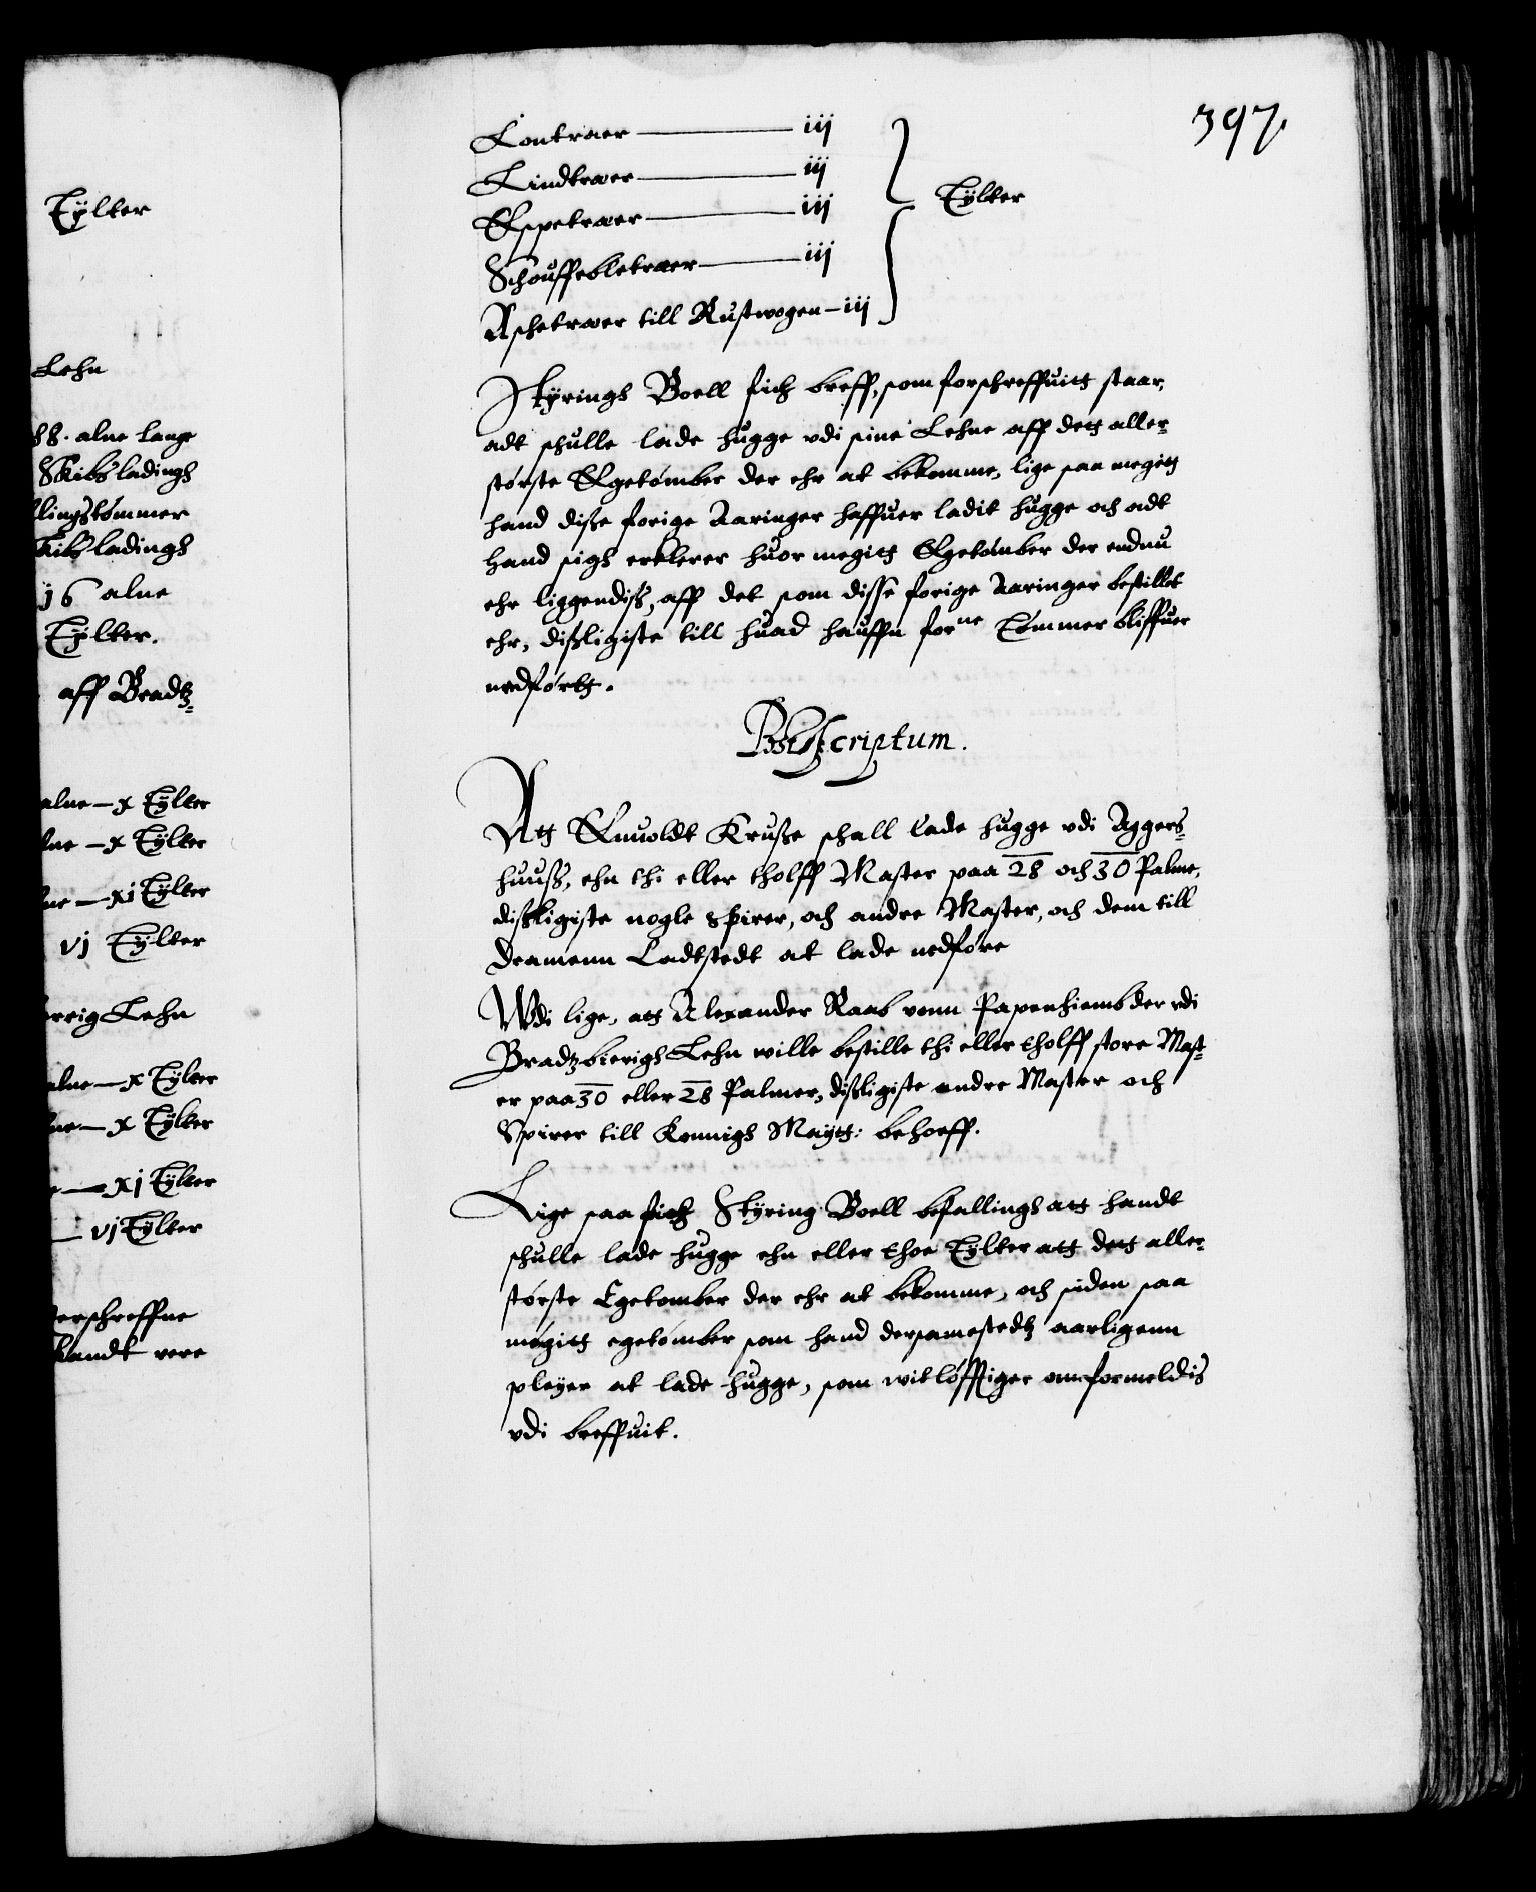 Tÿlter
Lehn
88. alne lange
Skibs ladingh
llingstømmer
kibs ladingh
j6 alne
Tÿlter.
aff Bradtz-
alne — x Tÿlter
lne — x Tÿlter
ne — xj Tÿlter
vj Tÿlter
errig Lehn
alne — x Tÿlter
ne — x Tÿlter
e — xj Tÿlter
— vj Tÿlter
erschreffne
kandt vere
397.
Lontræer — iij
Lindtræer — iij
Espetræer — iij
Schouffebletræer — iij
Aschetræer till Rustwogen — iij
Tÿlter
Stÿringh Boell fich breff, som forschreffuitt staar,
adt schulle lade hugge vdi sine Lehne aff dett aller-
størte Egetømber der ehr at bekomme, lige saa megitt
hand disse forige Aaringer haffuer ladit hugge och adt
hand sigh erklerer huor megitt Egetømber der endnu
ehr liggendiss, aff det som disse forige Aaringer bestillet
ehr, disligiste till huad hauffn forne Tømmer bliffuer
nedførtt.
Postscriptum.
Att Enuoldt Krusse schall lade hugge vdi Aggers-
huuss, ehn thi eller tholff Master paa 28 och 30 Palme,
disligiste nogle Spirer, och andre Master, och dem till
Dramenn Ladtstedt at lade nedføre
Wdi lige, att Alexander Raab vonn Papenhiemb der vdi
Bradtzbierigh Lehn wille bestille thi eller tholff store Mast-
er paa 30 eller 28 Palmer, disligiste andre Master och
Spirer till Konnigh Maÿtt: behoeff.
Lige saa fich Stÿring Boell befallingh att handt
schulle lade hugge ehn eller thoe Tÿlter att dett aller-
størte Egetomber der ehr at bekomme, och siden saa
megitt egetømber som hand dersamestedtz aarligenn
pleÿer at lade hugge, som witløfftiger omformeldis
vdi breffuit.